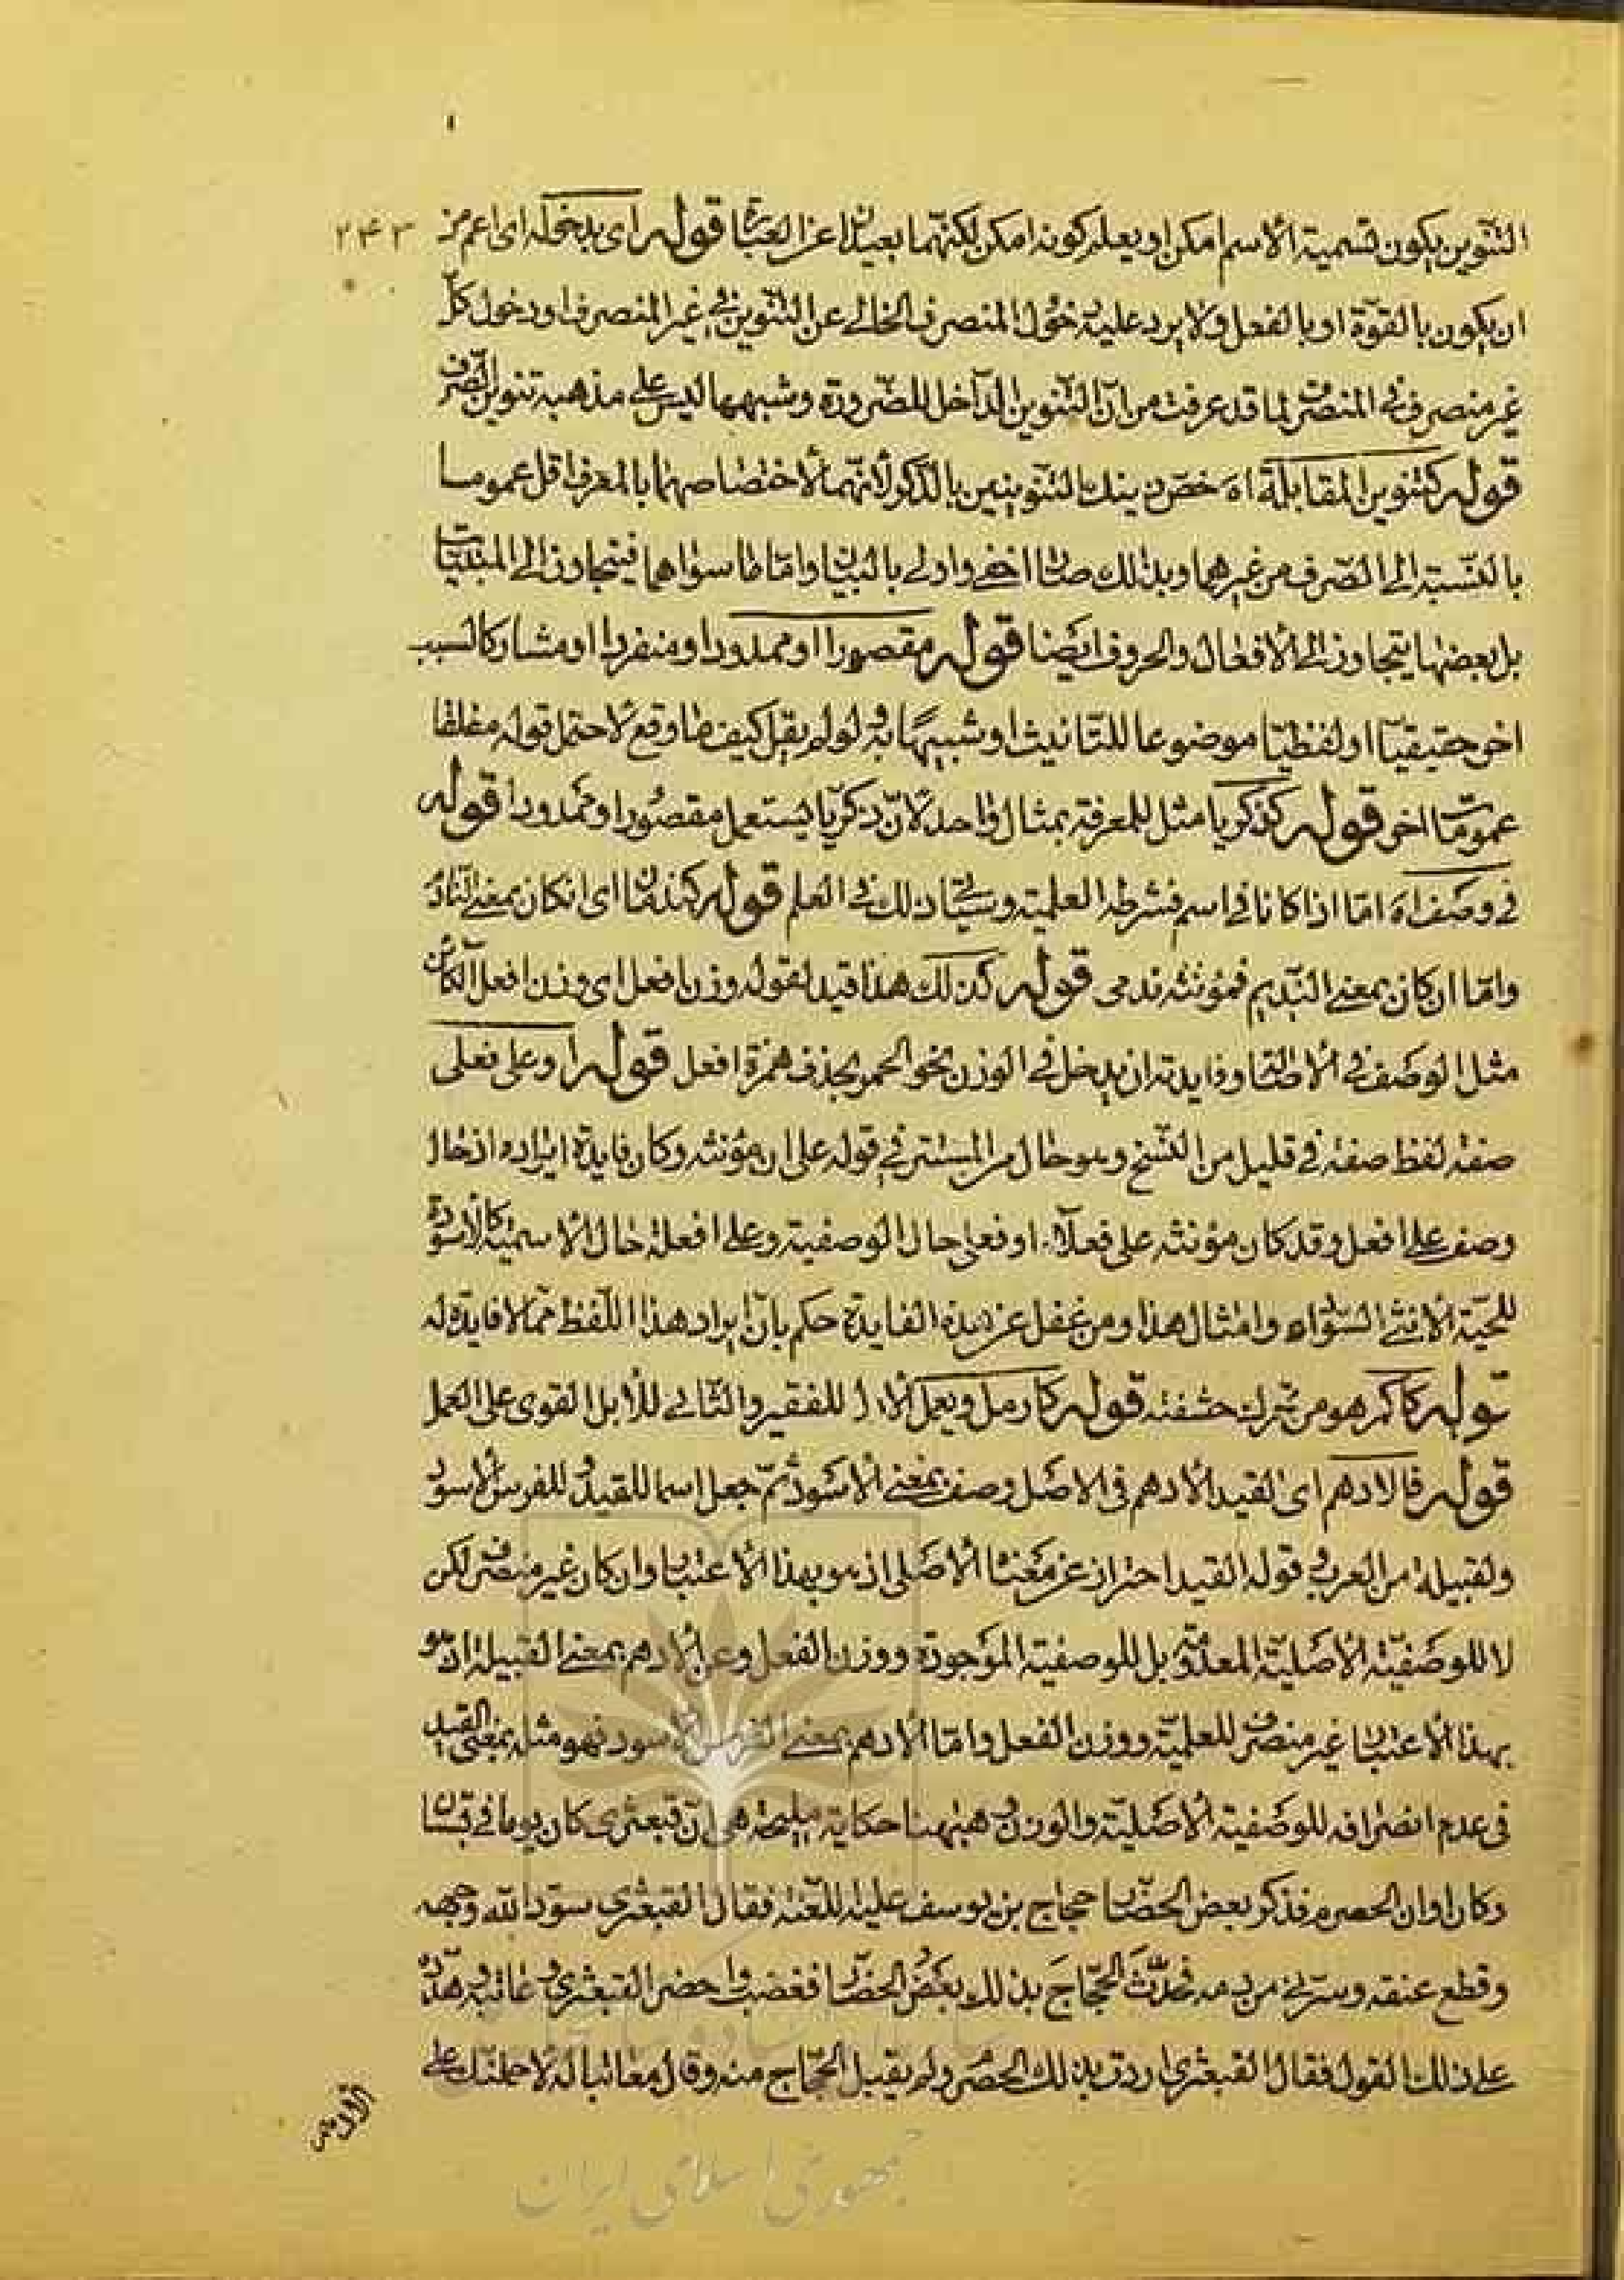 ٢٤٣
التنوين يكون تسمية الاسم امكن او يعلم كونه امكن لكنهما بعيدان عن العبارة قوله اى يدخله اى اعم من
ان يكون بالقوة او بالفعل ولا يرد عليه دخول المنصرف الخالى عن التنوين فى غير المنصرف او دخول كل
غير منصرف فى المنصرف لما قد عرفت من ان التنوين الداخل للضرورة وشبهها ليس على مذهبه تنوين الصرف
قوله كتنوين المقابلة اه خص ذينك التنوينين بالذكر لانهما لاختصاصهما بالمعرف اقل عموما
بالنسبة الى الصرف من غيرهما وبذلك صارا اخفى واولى بالبيان واما ما سواهما فيتجاوز الى المبنيات
بل بعضها يتجاوز الى الافعال والحروف ايضا قوله مقصورا او ممدودا ومنفردا او مشاركا لسبب
اخر حقيقيا او لفظيا موضوعا للتانيث او شبيها به ولو لم يقل كيف ما وقع لاحتمل قوله مطلقا
عموما اخر قوله كذكريا مثل للمعرفة بمثال واحد لان ذكريا يستعمل مقصورا وممدودا قوله
فى وصف اه اما اذا كانا فى اسم فشرطه العلمية وسيجئ ذلك فى العلم قوله كندمان اى ان كان بمعنى النادم
واما ان كان بمعنى النديم فمؤنثه ندمى قوله كذلك هذا قيد لقوله وزن افعل اى وزن افعل الكائن
مثل الوصف فى الاصالة وفايدته ان يدخل فى الوزن نحو الحمر بحذف همزة افعل قوله او على فعلى
صفة لفظ صفة فى قليل من النسخ وهو حال من المستتر فى قوله على ان مؤنثه وكان فايدة ايراده ادخال
وصف على افعل وقد كان مؤنثه على فعلاء او فعلى حال الوصفية وعلى افعلة حال الاسمية كالاسودة
للحية الانثى السوداء وامثال هذا ومن غفل عن هذه الفايدة حكم بان ايراد هذا اللفظ مما لا فايدة له
قوله كاكمر هو من تترك حشفته قوله كارمل ويعمل الاول للفقير والثانى للابل القوى على العمل
قوله فالادهم اى القيد الادهم فى الاصل وصف بمعنى الاسود ثم جعل اسما للقيد وللفرس الاسود
ولقبيلة من العرب وقوله القيد احتراز عن معناه الاصلى اذ هو بهذا الاعتبار وان كان غير منصرف لكن
لا للوصفية الاصلية المعدومة بل للوصفية الموجودة ووزن الفعل وعن الادهم بمعنى القبيلة اذ هو
بهذا الاعتبار غير منصرف للعلمية ووزن الفعل واما الادهم بمعنى الفرس الاسود فهو مثله بمعنى القيد
فى عدم انصرافه للوصفية الاصلية والوزن وههنا حكاية مليحة هى ان قبعثرى كان يوما فى بستان
وكان اوان الحصرم فذكر بعض الحضار حجاج بن يوسف عليه اللعنة فقال القبعثرى سود الله وجهه
وقطع عنقه وسقانى من دمه فحدث الحجاج بذلك بعض الحضار فغضب واحضر القبعثرى وعاتبه وهدده
على ذلك القول فقال القبعثرى اردت بذلك الحصرم ولم يقبل الحجاج منه وقال معاتبا له لاحملنك على
الادهم
جمهوری اسلامی ایران